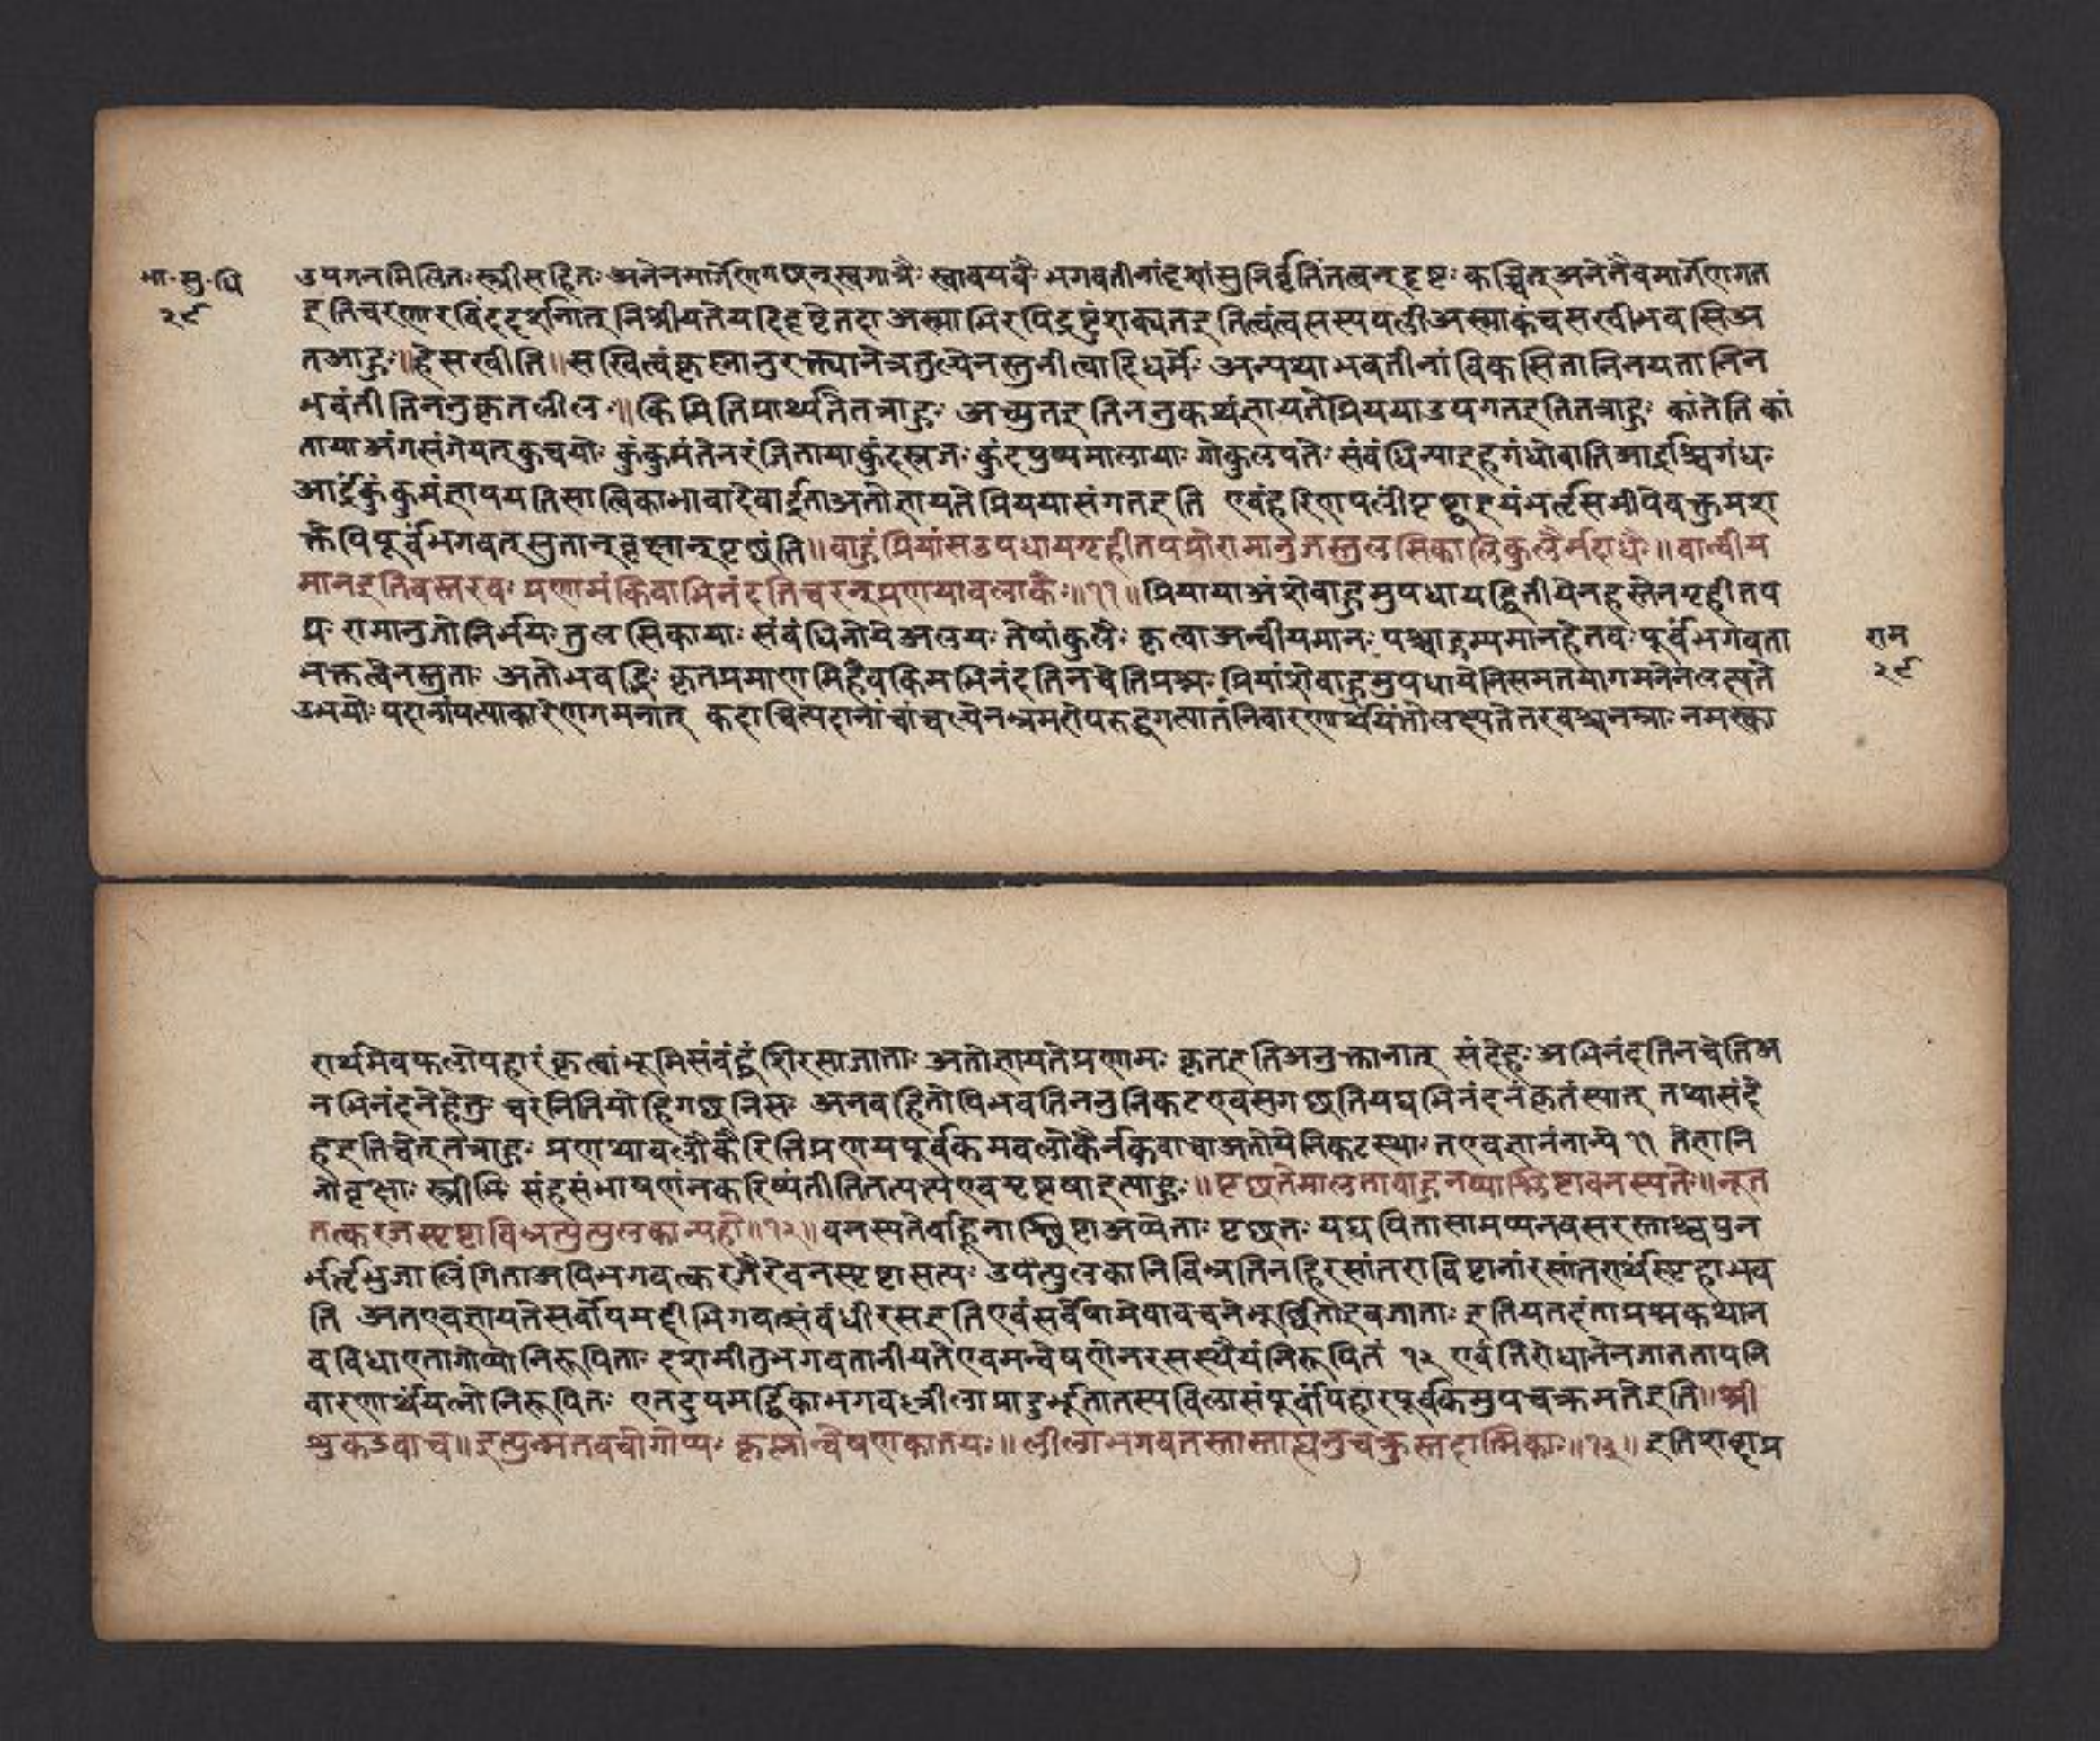 भा॰सु॰धि
२९
उपगतमिलितः स्त्रीसहितः अनेनमार्गेणगछन्स्वगात्रैः स्वावयवैः भगवतीनांदृशांसुनिर्वृतिंतत्वन्दृष्टः कच्चित् अनेनैवमार्गेणागत
इतिचरणारविंददर्शनात् निश्चीयतेयदिदृष्टेतदा अस्माभिरपिद्रष्टुंशक्यतइतित्वंत्वत्तस्यपत्नीअस्माकंचसखीभवसिअ
तआहुः॥हेसखीति॥सखित्वंकृष्णानुरक्त्यानेत्रतुल्येनस्तुनीत्वादिधर्मैः अन्यथाभवतीनांविकसितानिनयतानिन
भवंतीतिननुकृतलीलः॥किमितिप्रार्थ्यतेतत्राहुः अच्युतइतिननुकथंज्ञायतेप्रिययाउपगतइतितत्राहुः कांतेतिकां
तायाअंगसंगेयत्कुचयोः कुंकुमंतेनरंजितायाकुंदस्रजः कुंदपुष्पमालायाः गोकुलपतेः संबंधिन्याइहगंधोवातिआर्द्रश्चिगंधः
आर्द्रकुंकुमंज्ञापयतिसात्विकाभावादेवार्द्रताअतोज्ञायतेप्रिययासंगतइति एवंहरिणपत्नींपृष्ट्वाइयंभर्तृसमीपेवक्तुमश
क्तेपिपूर्वंभगवत्स्तुतान्वृक्षान्पृछंति॥बाहुंप्रियांसउपधायगृहीतपद्मोरामानुजस्तुलसिकालिकुलैर्मदांधैः॥वान्वीय
मानइतिवस्तरवः प्रणामंकिंवाभिनंदतिचरन्प्रणयावलोकैः॥११॥प्रियायाअंशेबाहुमुपधायद्वितीयेनहस्तेनगृहीतप
द्मः रामानुजोनिर्भयः तुलसिकायाः संबंधिनोयेअलयः तेषांकुलैः कृत्वाअन्वीयमानः पश्चाद्गम्यमानहेतवः पूर्वंभगवता
भक्तत्वेनस्तुताः अतोभवद्भिः कृतप्रमाणमिहैवकिमभिनंदतिनचेतिप्रश्नः प्रियांशेबाहुमुपधायेनिसमतयागमनेनलत्स्यते
उभयोः पदानांपत्याकारेणगमनात् कदाचित्पदानांचांचल्येनभ्रमरोपरुद्धगत्यातंनिवारणार्थंयितोलक्ष्यतेतरवश्चनम्राः नमस्का
राम
२९
रार्थमेवफलोपहारंकृत्वाभूमिसंबंद्धंशिरसाजाताः अतोज्ञायतेप्रणामः कृतइतिअनुक्तानात् संदेहः अभिनंदतिनचेतिअ
नभिनंदनेहेतुः चरन्नितियोहिगछन्निसः अनवहितोपिभवतिननुनिकटएवसगछतियद्यभिनंदनंकृतंस्यात् तथासंदे
हइतिचेत्तत्राहुः प्रणयावलोकैरितिप्रणयपूर्वकमवलोकैर्नक्तवाचाअतोयेनिकटस्थाः तएवज्ञानंतान्ये ११ तेज्ञानि
नोवृक्षाः स्त्रीभिः संहसंभाषणंनकरिष्यंतीतितत्पत्न्यएवप्रष्टव्याइत्याहुः॥पृछतेमालताबाहूनप्याश्लिष्टावनस्पतेः॥नूनं
तत्करजस्पृष्टाबिभ्रत्युत्पुलकान्यहो॥१२॥वनस्पतेर्बाहुनाश्लिष्टाअप्येताः पृछतः यद्यपितासामप्यनवसरस्तथापुन
र्भर्तृभुजालिंगिताअपिभगवत्करजैरेवनस्पृष्टासत्यः उत्पुलकानिबिभ्रतिनहिरसांतराविष्टानांरसांतरार्थस्पृहाभव
ति अतएवज्ञायतेसर्वोपमर्दीभगवत्संबंधीरसइतिएवंसर्वेषामेवावचनेमूर्छिताइवजाताः इतियतदंताप्रश्नकथान
वविधाएतागोप्योनिरूपिताः दशमीतुभगवतानीयतेएवमन्वेषणेनरसस्थैर्यंनिरूपितं १२ एवंतिरोधानेनजाततापनि
वारणार्थंयत्नोनिरूपितः एतदुपमर्द्दिकाभगवल्लीलाप्रादुर्भूतातस्यविलासंपूर्वोपहारपूर्वकमुपचक्रमतेइति॥श्री
शुकउवाच॥इत्युन्मतवचोगोप्यः कृष्णान्वेषणकातयः॥लीलाभगवतस्तास्ताह्यनुचक्रुस्तदात्मिकाः॥१३॥इतिशब्दप्र